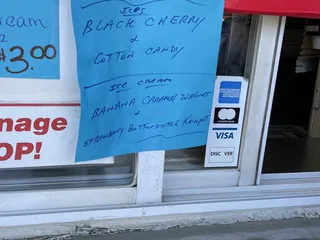 ream
$3.00
ICES
BLACK CHERRY
&
COTTON CANDY
ICE CREAM
BANANA CARAMEL WALNUT
&
STRAWBERRY BUTTERSCOTCH KRIMPET
nage
OP!
VISA
DISC VER